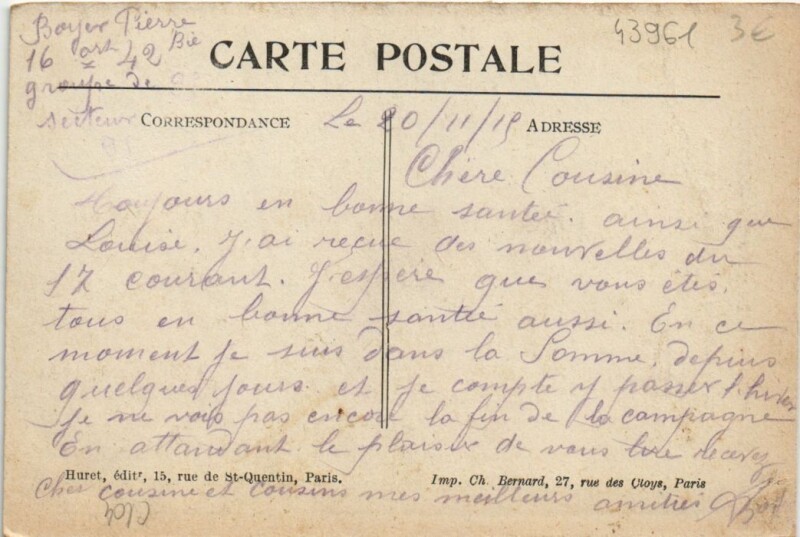 Boyer Pierre
16 art 42 Bie
groupe de
secteur
43961 3€
CARTE POSTALE
CORRESPONDANCE
ADRESSE
Le 20/11/15
Chère Cousine
Toujours en bonne santée. ainsi que
Louise. J'ai reçue des nouvelles du
17 courant. J'espère que vous êtes
tous en bonne santée aussi. En ce
moment je suis dans la Somme. depuis
quelques jours et je compte y passer l'hiver
je ne vois pas encore la fin de la campagne
En attandant le plaisir de vous lire recevez
Huret, éditr, 15, rue de St-Quentin, Paris.
Imp. Ch. Bernard, 27, rue des Cloys, Paris
Cher cousine et cousins mes meilleurs amitiés